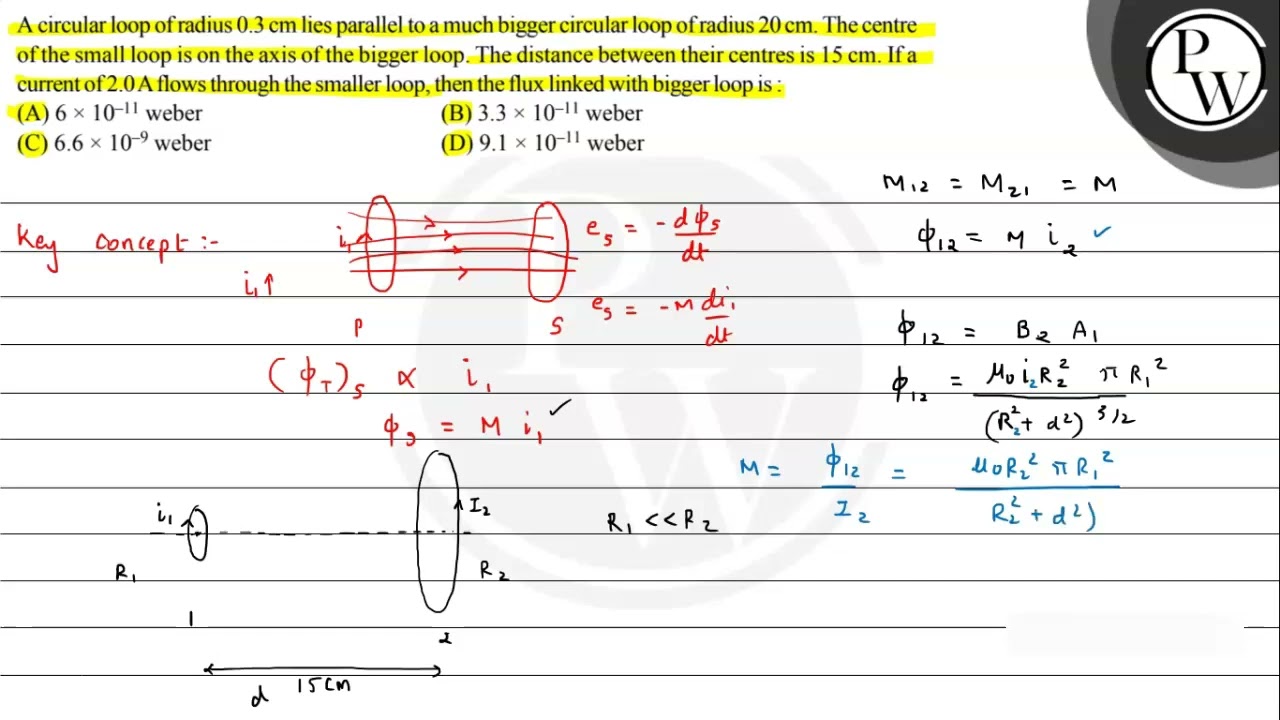 A circular loop of radius 0.3 cm lies parallel to a much bigger circular loop of radius 20 cm. The centre
of the small loop is on the axis of the bigger loop. The distance between their centres is 15 cm. If a
current of 2.0 A flows through the smaller loop, then the flux linked with bigger loop is :
(A) 6 × 10⁻¹¹ weber (B) 3.3 × 10⁻¹¹ weber
(C) 6.6 × 10⁻⁹ weber (D) 9.1 × 10⁻¹¹ weber
P
W
M₁₂ = M₂₁ = M
ϕ₁₂ = M i₂ ✓
Key concept :-
i₁
i₁↑
P
S
eₛ = - dϕₛ/dt
eₛ = - M di₁/dt
(ϕ_T)ₛ ∝ i₁
ϕₛ = M i₁ ✓
ϕ₁₂ = B₂ A₁
ϕ₁₂ = μ₀ i₂ R₂² π R₁² / (R₂² + d²) 3/2
M = ϕ₁₂ / I₂ = μ₀ R₂² π R₁² / R₂² + d²)
i₁
I₂
R₁ << R₂
R₁
R₂
1
2
d 15 cm